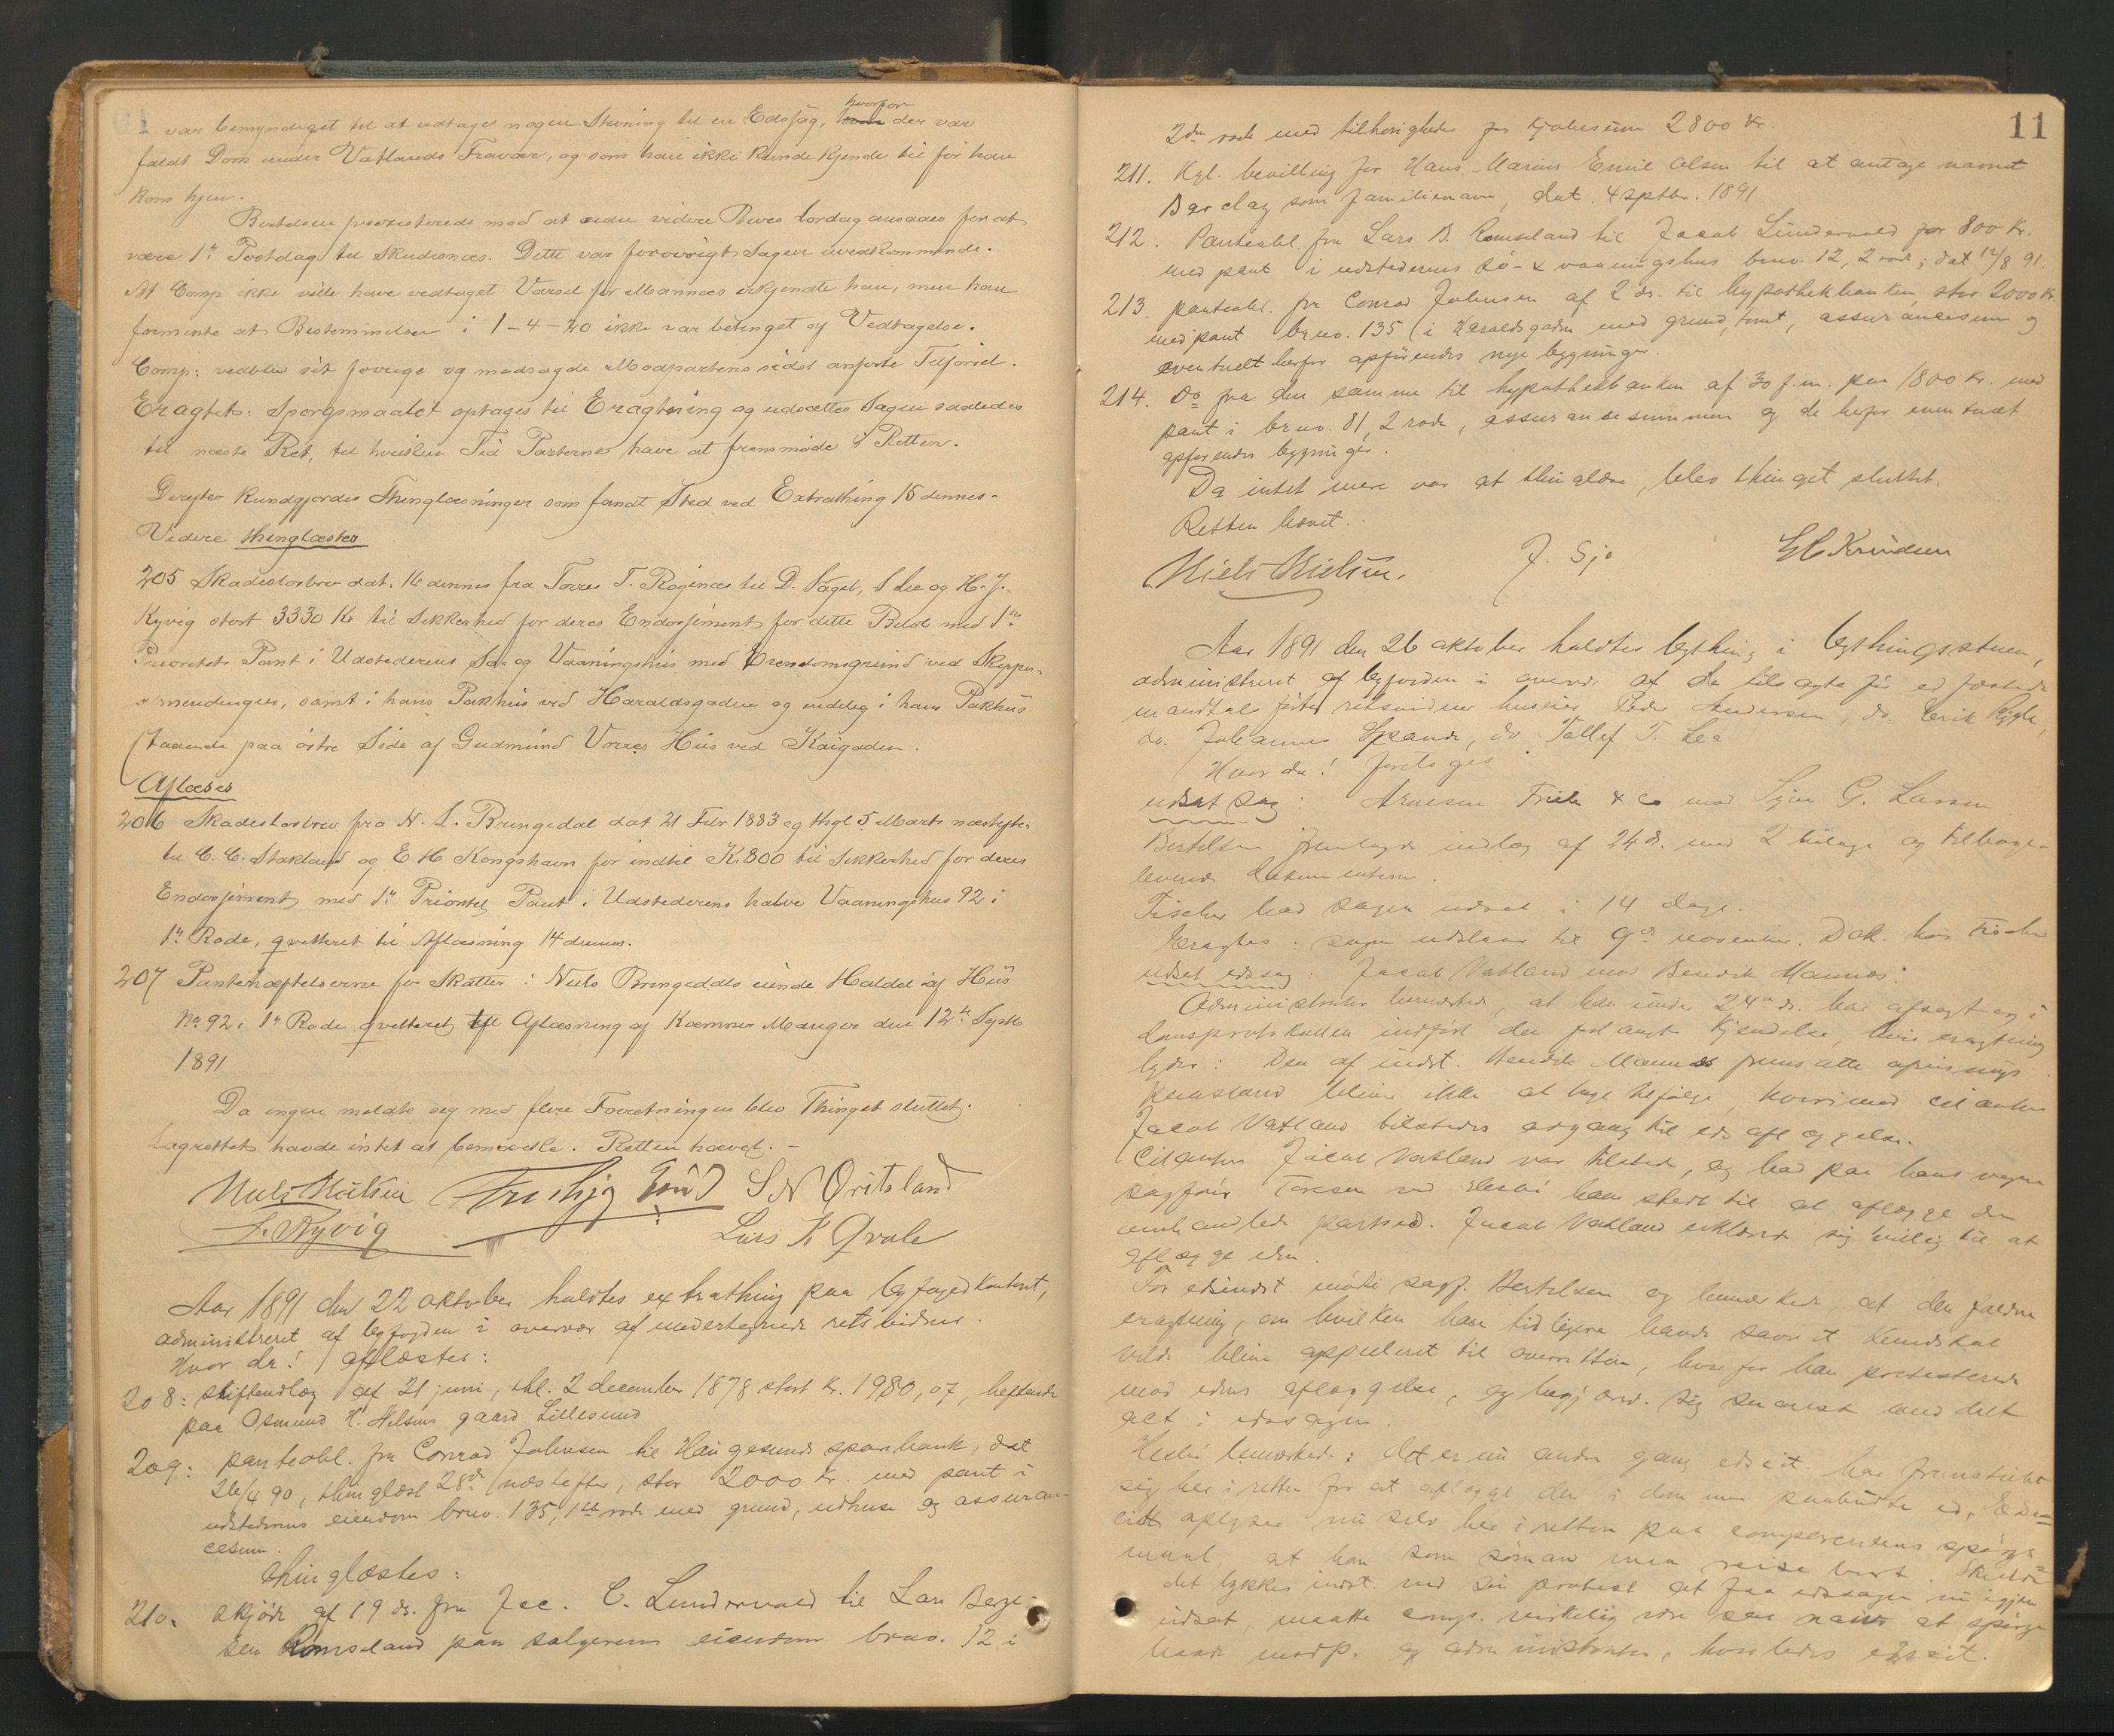 var bemyndiget til at udtage nogen Stevning til en Edsag, hvorfor der var
faldt Dom under Vatlands Fravær, og som han ikke kunde kjende til før han
kom hjem.
Bertelsen protesterede mod at videre Bevis lørdag ansaaes for at
være 1ste Postdag til Skudesnæs. Dette var forøvrigt Sagen uvedkommende.
At Comp ikke vilde have vedtaget Varsel for Mannæs erkjendte han, men han
formente at Bestemmelsen i 1-4-20 ikke var betinget af Vedtagelse.
Comp: vedblev sit forrige og modsagde Modpartens sidst anførte Tilførsel.
Eragtet: Spørgsmaalet optages til Eragtning og udsættes Sagen saaledes
til næste Ret, til hvilken Tid Parterne have at fremmøde i Retten.
Derefter kundgjordes Thinglæsninger som fandt Sted ved Extrathing 15 dennes.
Videre thinglæstes
205 Skadesløsbrev dat. 16 dennes fra Torres T. Røgenæs til D. Saget, S Lie og H. J.
Kyvig stort 3330 Kr til Sikkerhed for deres Endossement for dette Beløb med 1ste
Prioritets Pant i Udstederens Sø- og Vaaningshus med Eiendomsgrund ved Skipper-
smedengen, samt i hans Pakhus ved Haraldsgaden og endelig i hans Pakhus
staaende paa østre Side af Gudmund Vorres Hus ved Kaigaden.
Aflæses
206 Skadesløsbrev fra N. L. Bringedal dat 21 Febr 1883 og thgl 5 Marts næstefter
til C. C. Stakland og E H Kongshavn for indtil Kr 800 til Sikkerhed for deres
Endossement med 1ste Prioritets Pant i Udstederens halve Vaaningshus 92 i
1ste Rode, qvitteret til Aflæsning 14 dennes.
207 Pantehæftelserne for Skatter i Niels Bringedals Haldel af Hus
No 92 i 1ste Rode qvitteret til Aflæsning af Kæmner Mauger den 12te Septb
1891
Da ingen meldte sig med flere Forretninger blev Thinget sluttet.
Lagrettet havde intet at bemærke. Retten hævet. -
Niels Nielsen S N Øritsland
S. Kyvig Lars K Qvale
Aar 1891 den 22 oktober holdtes extrathing paa byfogedkontoret,
administreret af byfogden i overvær af undertegnede retsvidner.
Hvor da! aflæstes:
208: skifteudlæg af 21 juni, thl. 2 december 1878 stort kr. 1980,07, heftende
paa Osmund H. Nilsens gaard Lillesund
209: panteobl. fra Conrad Johnsen til Haugesunds sparebank, dat
26/4 90, thinglæst 28de næstefter, stor 2000 kr. med pant i
udstederens eiendom brno. 135, 1ste rode med grund, udhuse og assuran-
cesum.
thinglæstes:
210. skjøde af 19 ds. fra Jac. C. Lundervold til Lars Berge-
sen Romseland paa sælgerens eiendom brno. 12 i
11
2den rode med tilhørigheder for kjøbesum 2800 kr.
211. Kgl. bevilling for Hans Marius Emil Olsen til at antage navnet
Barclay som familienavn, dat. 4 septbr. 1891
212. Panteobl. fra Lars B. Romseland til Jacob Lundervold for 800 kr.
med pant i udstederens sø- & vaaningshus brno. 12, 2 rode, dat 12/8 91.
213. panteobl. fra Conrad Johnsen af 2 ds. til hypothekbanken, stor 2000 kr.
med pant brno. 135 i Haraldsgaden med grund, tomt, assurancesum og
eventuelt herfor opførendes nye bygninger.
214. Do fra den samme til hypothekbanken af 30 f.m. paa 1800 kr. med
pant i brno. 81, 2 rode, assuransesummen og de herfor eventuelt
opførendes bygninger.
Da intet mere var at thinglæse, blev thinget sluttet.
Retten hævet.
Niels Nielsen. J. Sjo Knudsen
Aar 1891 den 26 oktober holdtes bything i bythingsstuen,
administreret af byfogden i overvær af de tilsagte før edfæstede
mandtalsførte retsvidner huseier Peder Andersen, do. Erik
do. Johannes do Tollef T. Lea
Hvor da! foretoges
udsat sag: Arnesen Friele & Co mod G. Larsen
Bertelsen fremlagde indlæg af 24 ds. med 2 bilage og tilbage-
leverede dokumenterne.
Fischer bad sagen udsat i 14 dage.
Eragtes: sagen udstaar til 9de november. Dok. hos Fischer
udsat edssag: Jacob Vatland mod Bendik Mannæs:
Administrator bemærkede, at han under 24de ds. har afsagt og i
domsprotokollen indført den forlangte kjendelse, hvis eragtning
lyder: Den af indst. Bendik Mannæs fremsatte afvisnings-
paastand bliver ikke at tage tilfølge, hvorimod citanten
Jacob Vatland tilstedes adgang til eds aflæggelse.
Citanten Jacob Vatland var tilstede, og bad paa hans vegne
sagfører Toresen ved Hesbø ham stedt til at aflægge den
omhandlede partsed. Jacob Vatland erklærede sig villig til at
aflægge eden.
For edsindst. mødte sagf. Bertelsen og bemærkede, at den faldne
eragtning, om hvilken han tidligere havde savnet kundskab
vilde blive appelleret til overretten, hvorfor han protesterede
mod edens aflæggelse, og begjærede sig snarest meddelt
akt i edssagen.
Hesbø bemærkede: det er nu anden gang edscit. har fremstillet
sig her i retten for at aflægge den i dommen paabudte ed. Eds-
cit. oplyser nu selv her i retten paa comparentens spørgs-
maal, at han som sømand maa reise bort. Skulde
det lykkes indst. med sin protest at faa edssagen nu igjen
udsat, maatte comp. virkelig være saa naiv at spørge
baade modp. og administrator, hvorledes edscit.